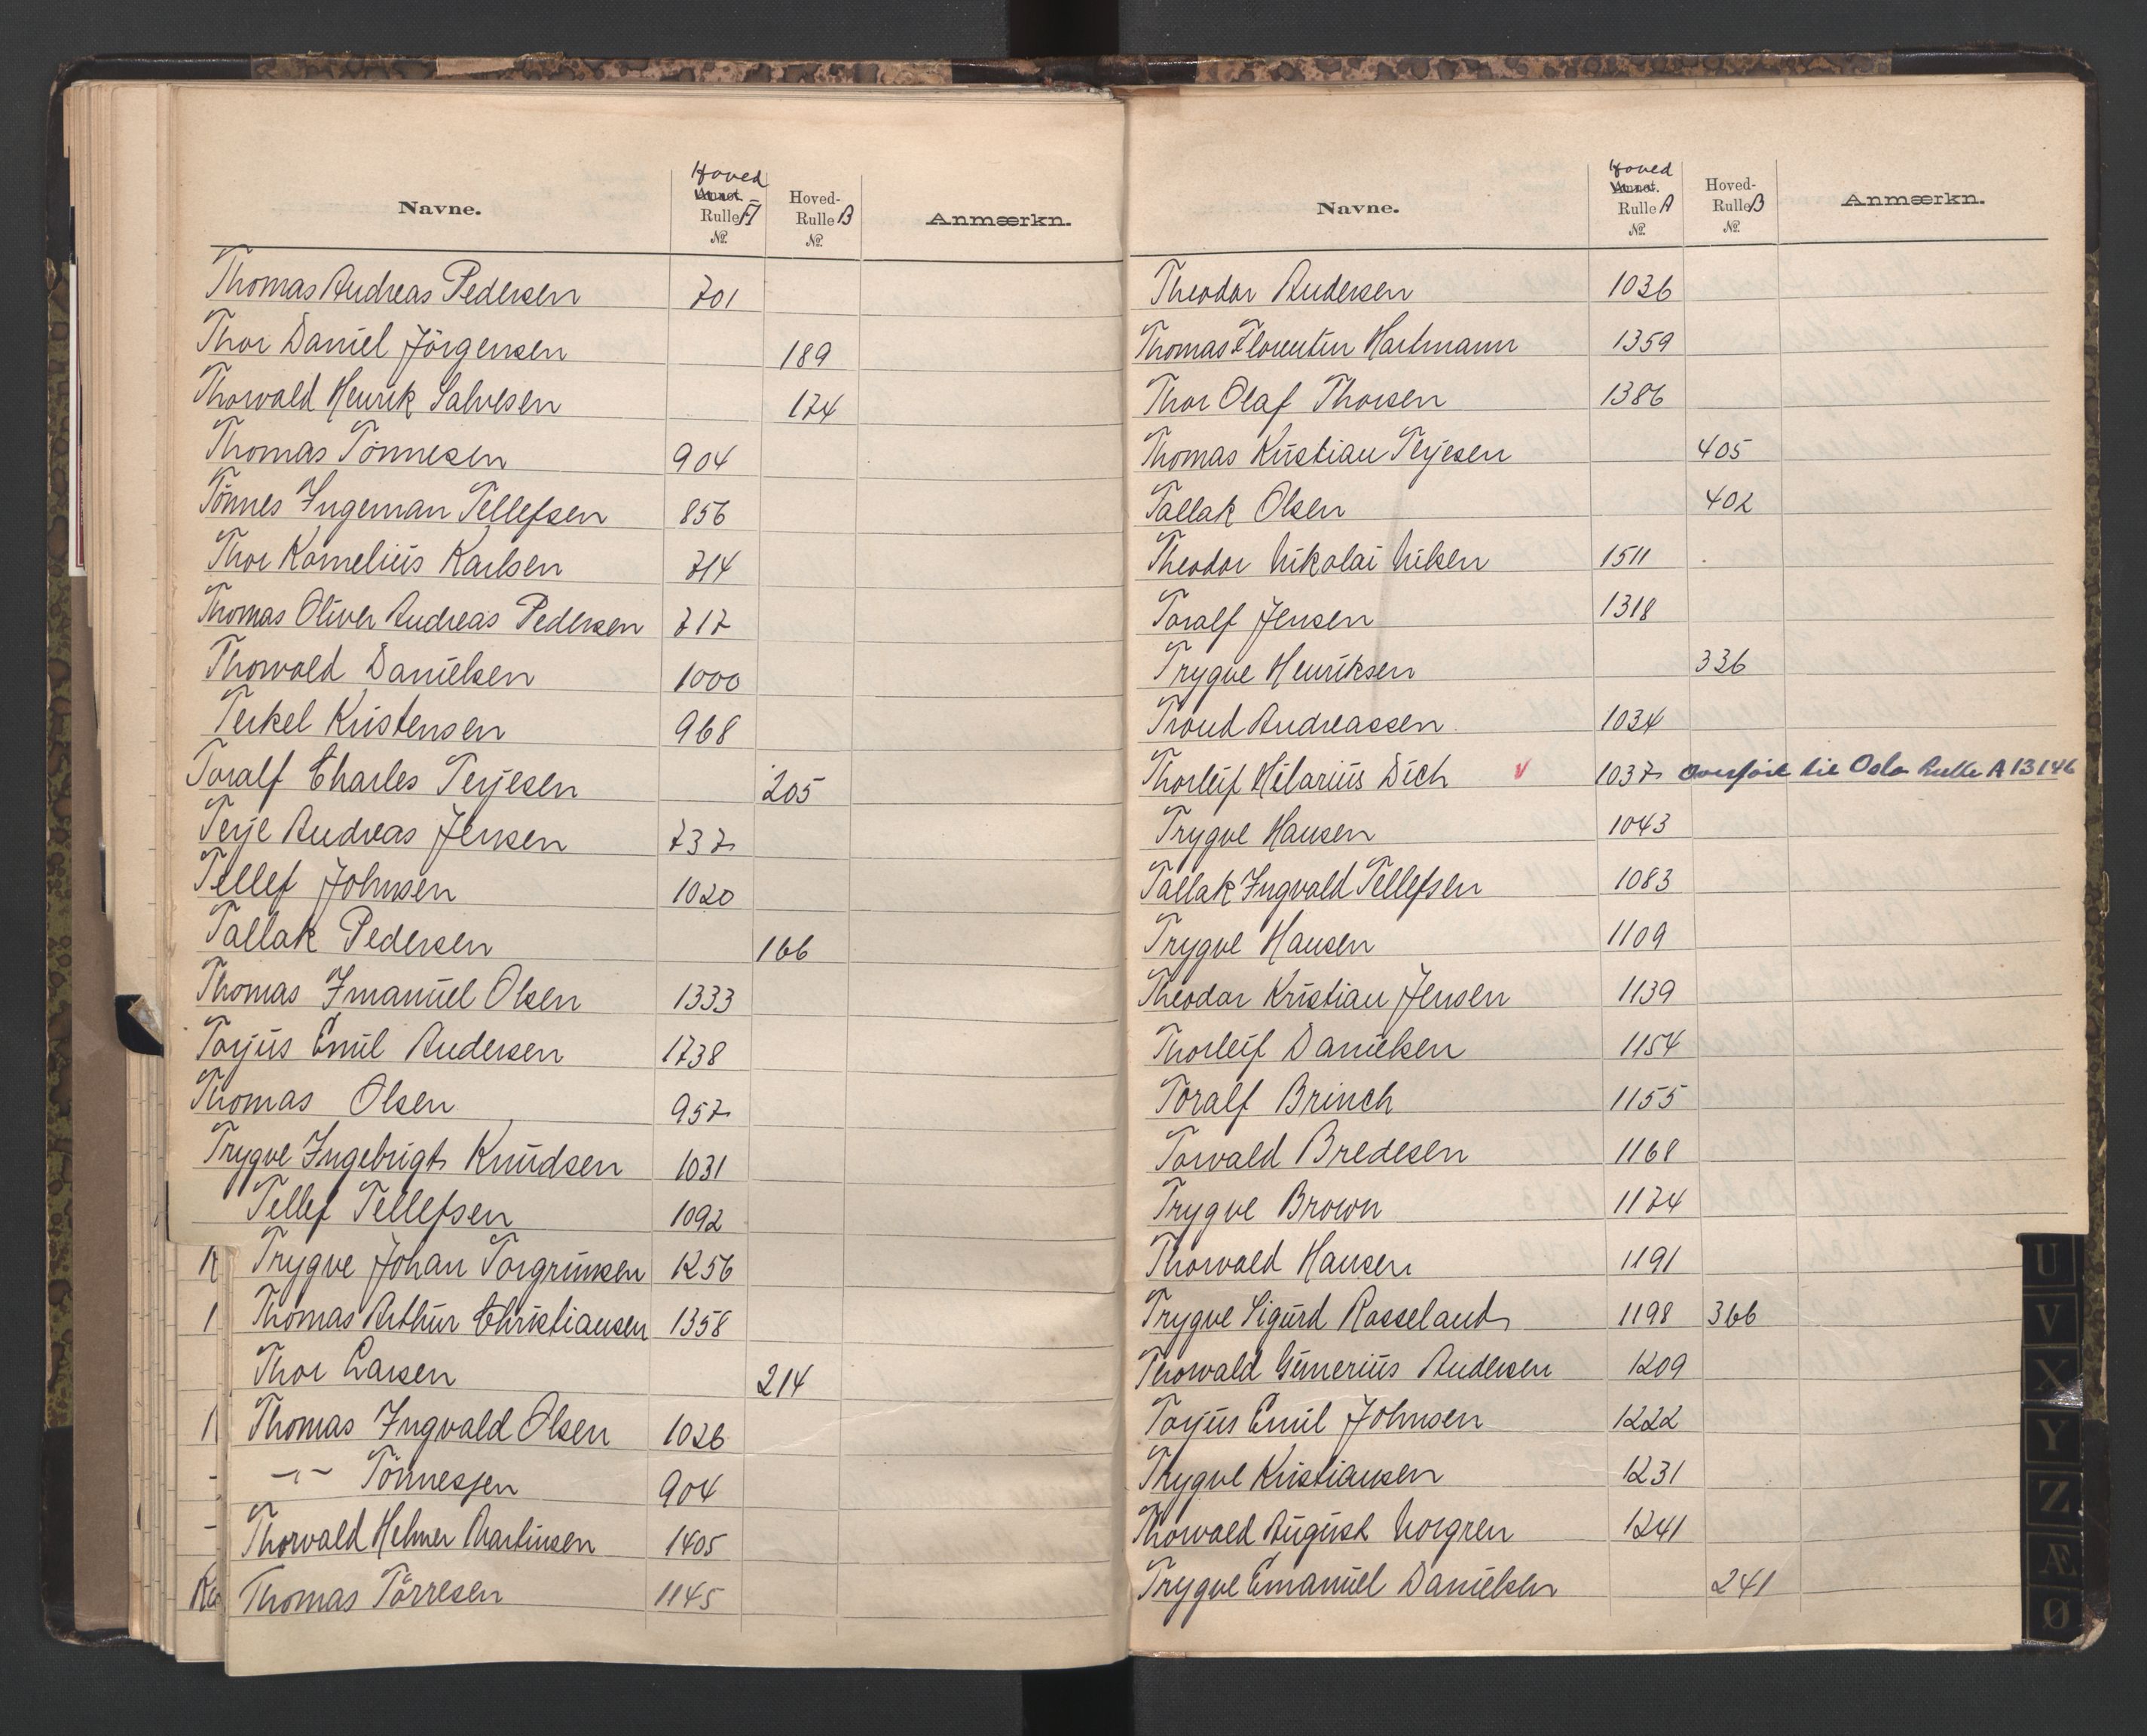 Navne. Hoved Annot. Rulle A № Hoved-Rulle B № Anmærkn.
Thomas Andreas Pedersen 701
Thor Daniel Jörgensen 189
Thorvald Henrik Salvesen 174
Thomas Tönnesen 904
Tönnes Ingeman Tellefsen 856
Thor Kornelius Karlsen 714
Thomas Oliver Andreas Pedersen 717
Thorvald Danielsen 1000
Terkel Kristensen 968
Toralf Charles Terjesen 205
Terje Andreas Jensen 737
Tellef Johnsen 1020
Tallak Pedersen 166
Thomas Imanuel Olsen 1333
Torjus Emil Andersen 1738
Thomas Olsen 957
Trygve Ingebrigt Knudsen 1031
Tellef Tellefsen 1092
Trygve Johan Torgrimsen 1256
Thomas Arthur Christiansen 1358
Thor Larsen 214
Thomas Ingvald Olsen 1026
-"- Tönnessen 904
Thorvald Helmer Martinsen 1405
Thomas Törresen 1145
Navne. Hoved Annot. Rulle A № Hoved-Rulle B № Anmærkn.
Theodor Andersen 1036
Thomas Florentin Hartmann 1359
Thor Olaf Thorsen 1386
Thomas Kristian Terjesen 405
Tallak Olsen 402
Theodor Nikolai Nilsen 1511
Toralf Jensen 1318
Trygve Henriksen 336
Trond Andreassen 1034
Thorleif Hilarius Dich v 1037 overført til Oslo Rulle A 13146
Trygve Hansen 1043
Tallak Ingvald Tellefsen 1083
Trygve Hansen 1109
Theodor Kristian Jensen 1139
Thorleif Danielsen 1154
Toralf Brinch 1155
Torvald Bredesen 1168
Trygve Brown 1174
Thorvald Hansen 1191
Trygve Sigurd Rosseland 1198 366
Thorvald Gunerius Andersen 1209
Torjus Emil Johnsen 1222
Trygve Kristiansen 1231
Thorvald August Norgren 1241
Trygve Emanuel Danielsen 241
U
V
X
Y
Z
Æ
Ø